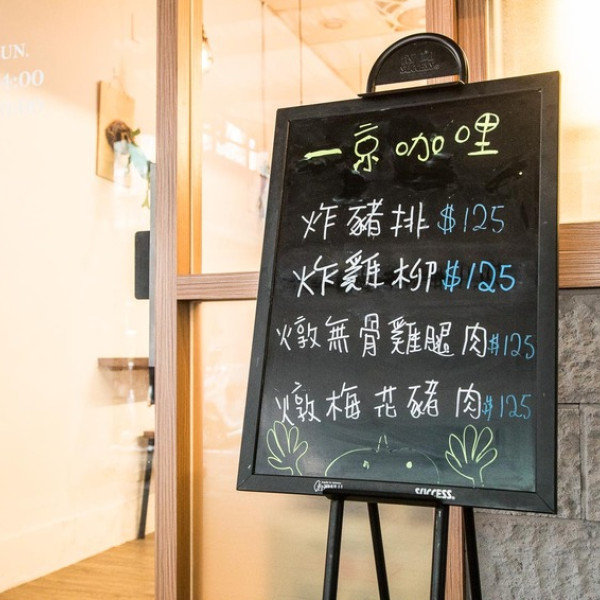 UN.
:00
一京咖哩
炸豬排 $125
炸雞柳 $125
燉無骨雞腿肉 $125
燉梅花豬肉 $125
SUCCESS.